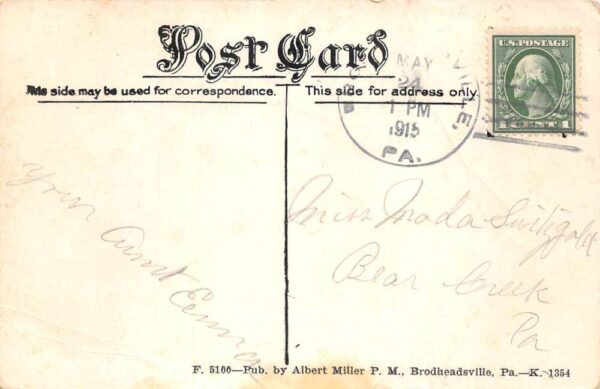 Post Card
This side may be used for correspondence.
This side for address only.
MAY
24
1 PM
1915
PA.
U.S. POSTAGE
1 CENT 1
Your
Aunt Emma
Miss Moda Switzgold
Bear Creek
Pa
F. 5100—Pub. by Albert Miller P. M., Brodheadsville, Pa.—K. 1354